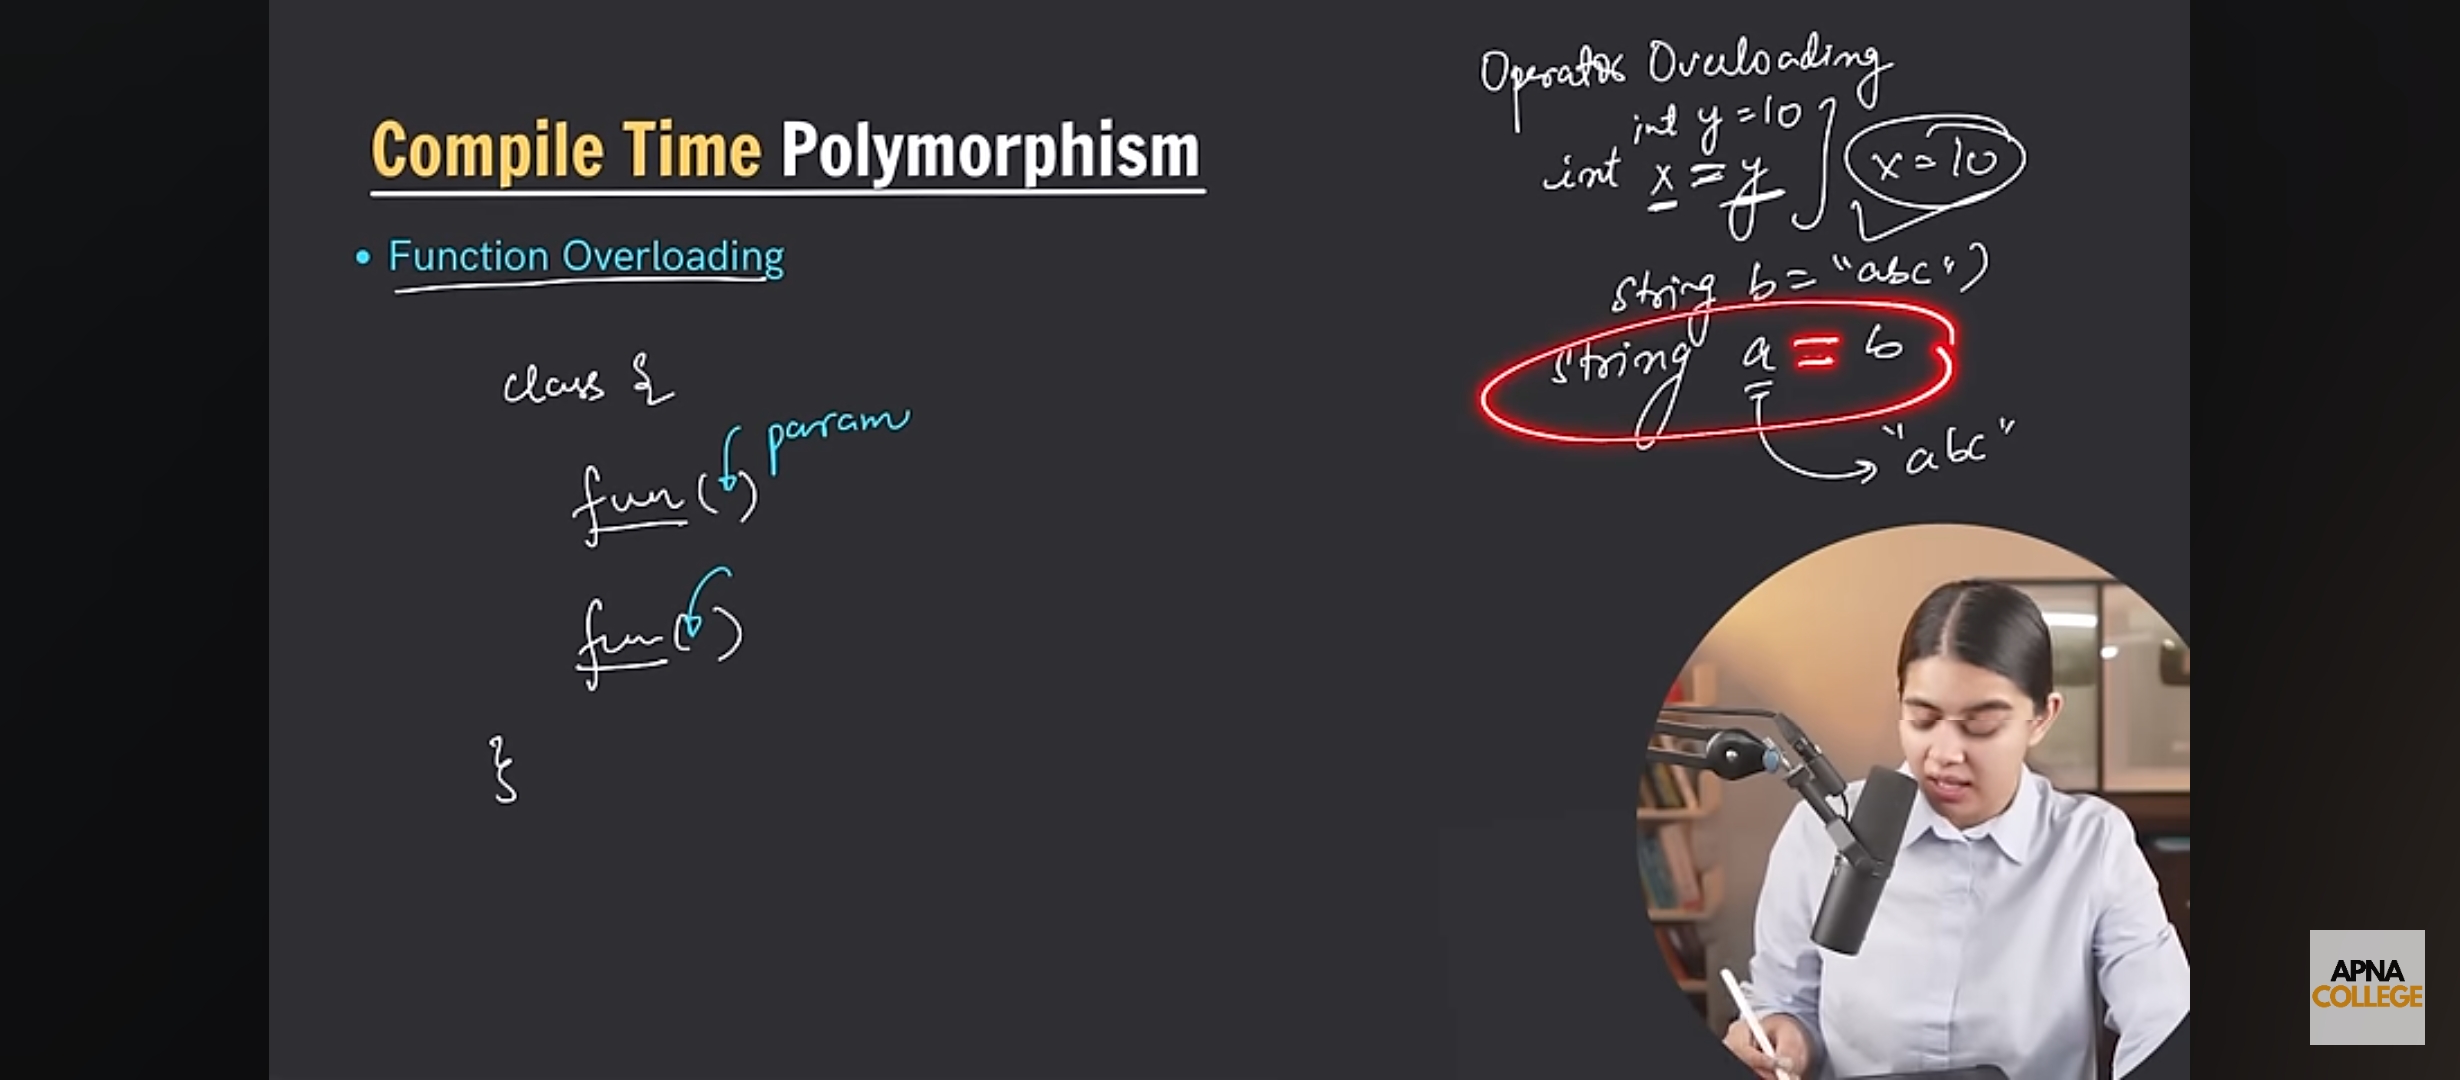 Compile Time Polymorphism
• Function Overloading
class {
fun( ) param
fun( )
}
Operator Overloading
int y = 10
int x = y
x = 10
string b = "abc")
string a = b
"abc"
APNA
COLLEGE